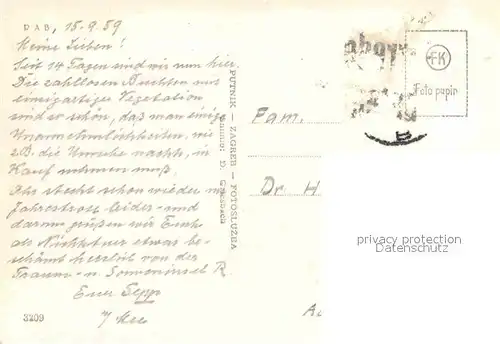 RAB, 15.9.59
Meine Lieben!
Seit 14 Tagen sind wir nun hier.
Die zahllosen Buchten mit
einzigartiger Vegetation
sind so schön, daß man einige
Unannehmlichkeiten, wie
z.B. die Unruhe nachts, in
Kauf nehmen muß.
Ihr steckt schon wieder im
Jahrestrott leider - und
darum grüßen wir Euch
als Nichtstuer etwas be-
schämt herzlich von der
Traum- u. Sonneninsel R.
Euer Sepp
3209
PUTNIK — ZAGREB — FOTOSLUŽBA
Fam.
Dr H
FK
Foto papir
privacy protection
Datenschutz